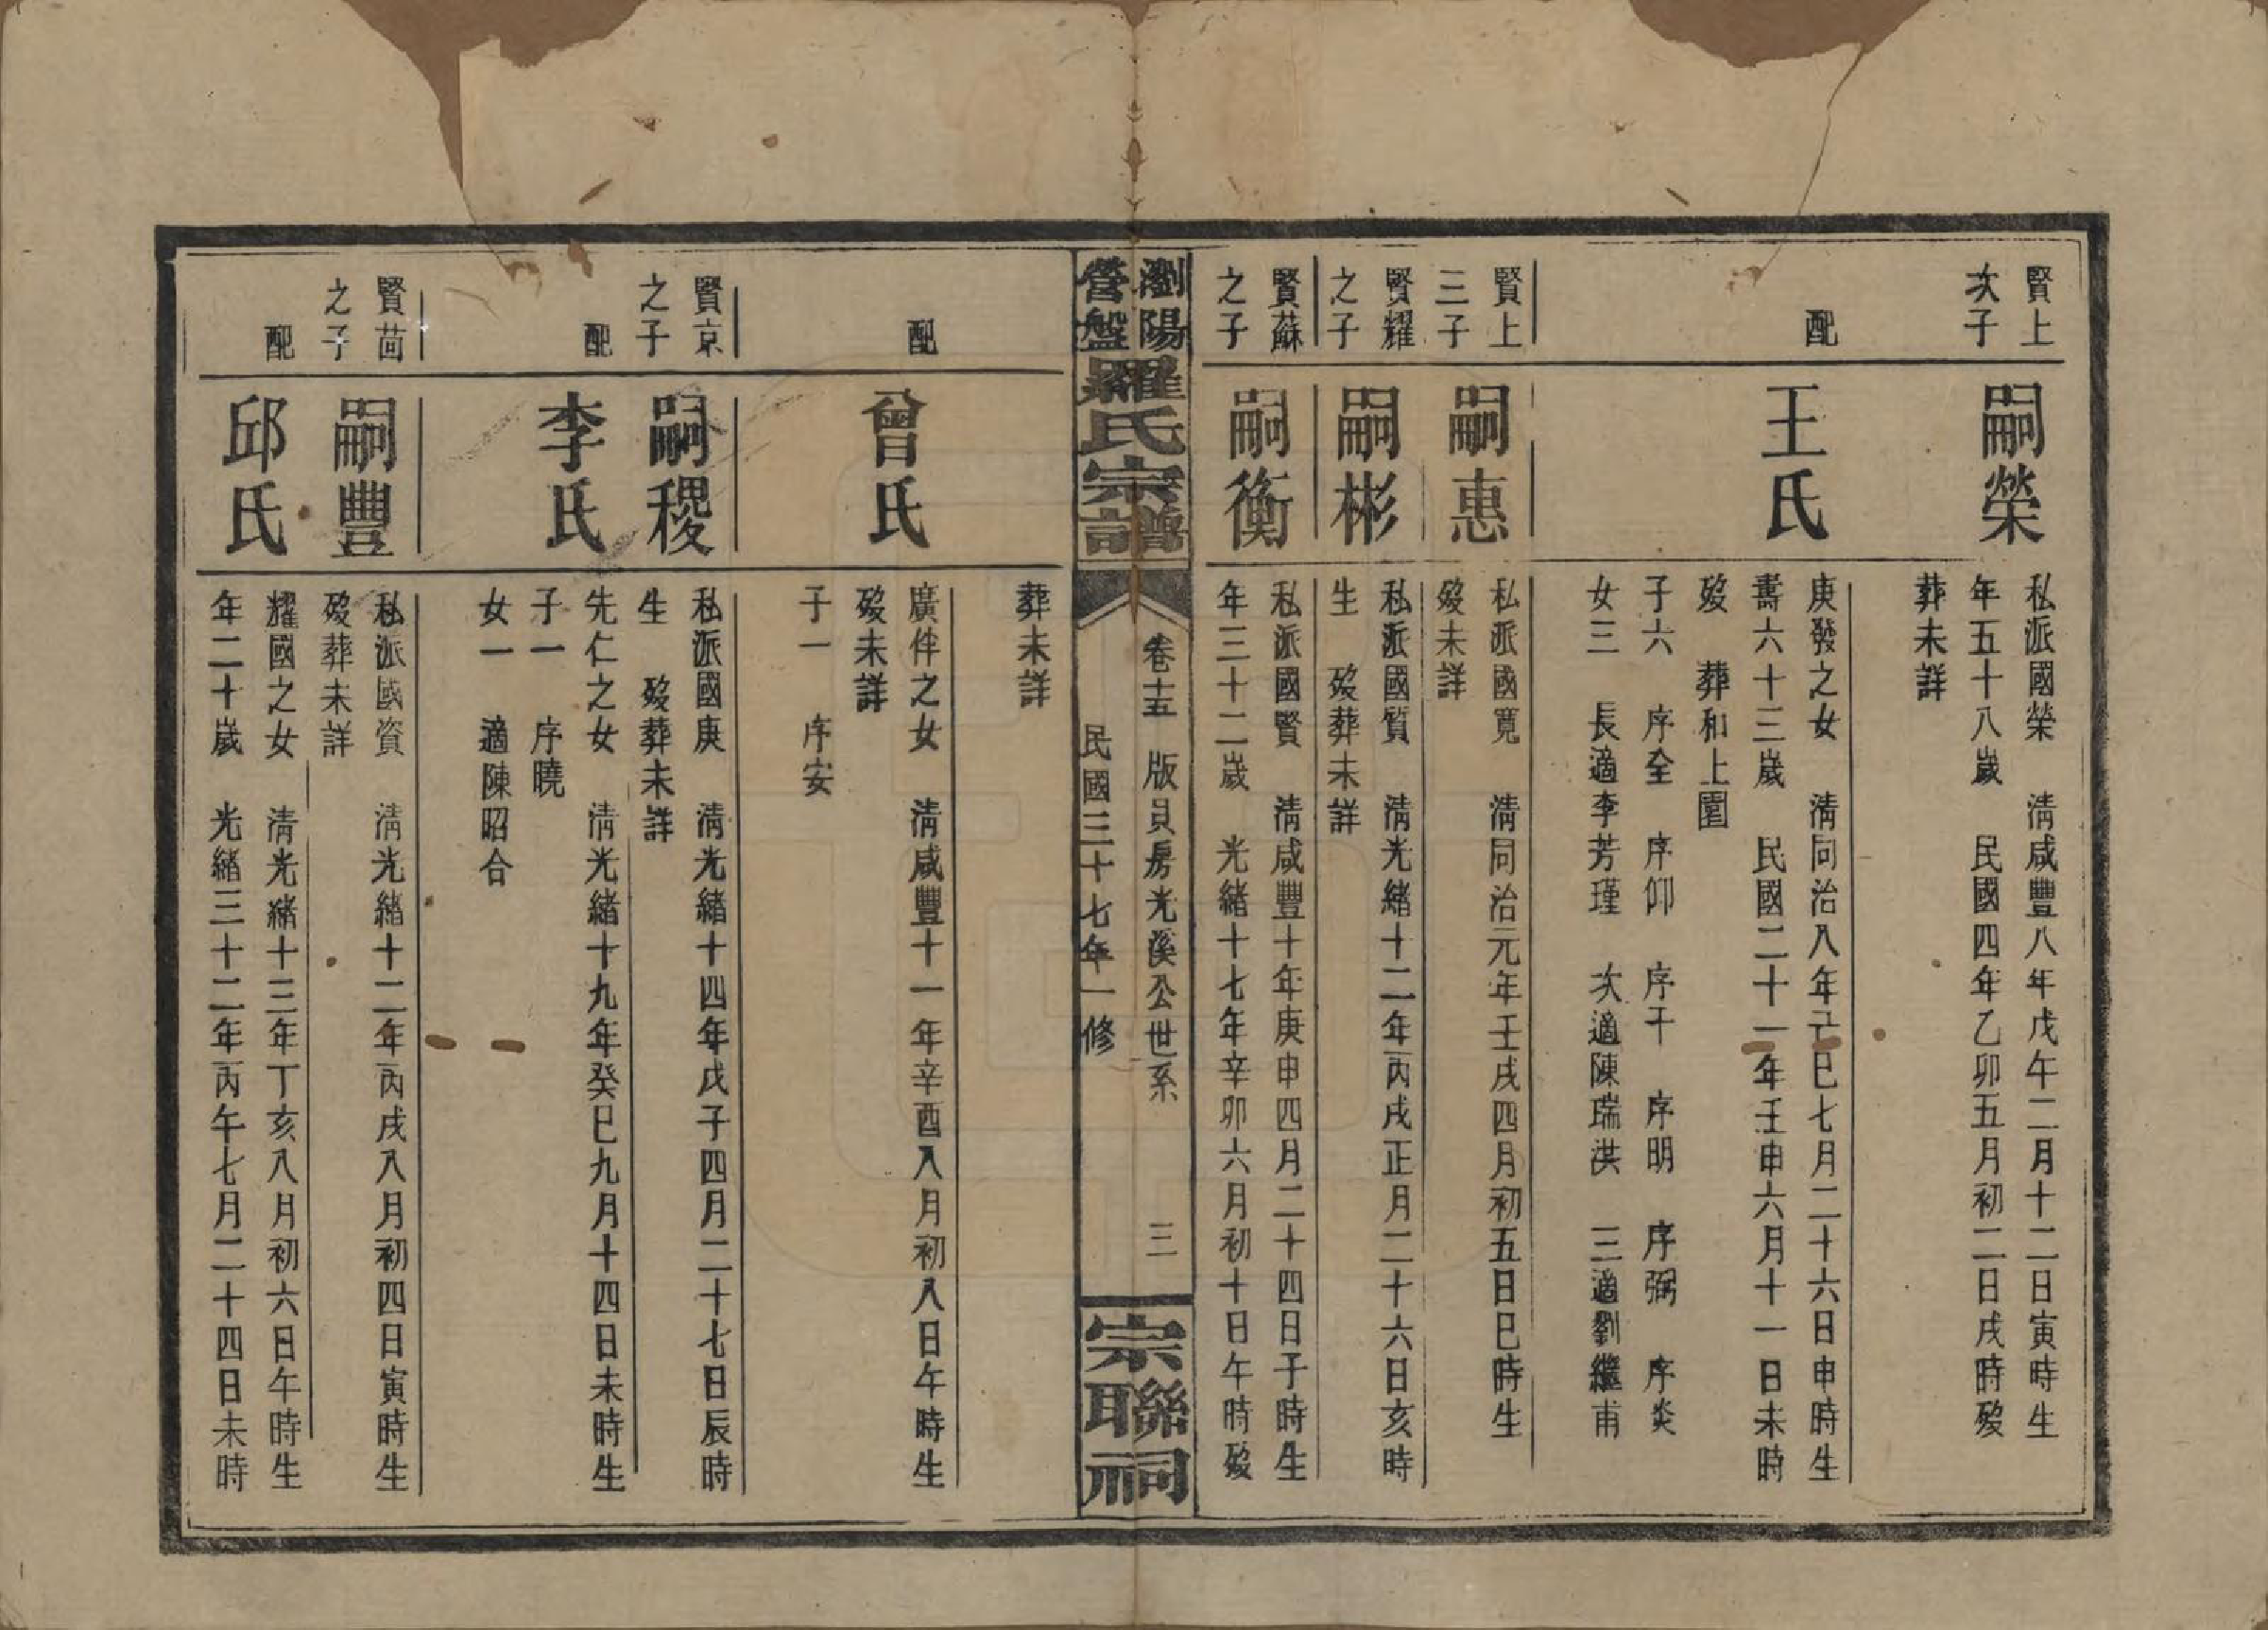 賢上
次子
嗣榮
私派國榮　清咸豐八年戊午二月十二日寅時生
年五十八歲　民國四年乙卯五月初二日戌時殁
葬未詳
配
王氏
庚發之女　清同治八年己巳七月二十六日申時生
壽六十三歲　民國二十一年壬申六月十一日未時
殁　葬和上圍
子六　序全　序仰　序干　序明　序弼　序炎
女三　長適李芳瑾　次適陳瑞洪　三適劉繼甫
賢上
三子
嗣惠
私派國寬　清同治元年壬戌四月初五日巳時生
殁未詳
賢耀
之子
嗣彬
私派國質　清光緒十二年丙戌正月二十六日亥時
生　殁葬未詳
賢蘇
之子
嗣衡
私派國賢　清咸豐十年庚申四月二十四日子時生
年三十二歲　光緒十七年辛卯六月初十日午時殁
瀏陽
營盤
羅氏宗譜
卷十五　版貝房光溪公世系　三
民國三十七年一修
宗聯祠
葬未詳
配
曾氏
廣伴之女　清咸豐十一年辛酉八月初八日午時生
殁未詳
子一　序安
賢京
之子
嗣稷
私派國庚　清光緒十四年戊子四月二十七日辰時
生　殁葬未詳
配
李氏
先仁之女　清光緒十九年癸巳九月十四日未時生
子一　序曉
女一　適陳昭合
賢茼
之子
嗣豐
私派國資　清光緒十二年丙戌八月初四日寅時生
殁葬未詳
配
邱氏
耀國之女　清光緒十三年丁亥八月初六日午時生
年二十歲　光緒三十二年丙午七月二十四日未時